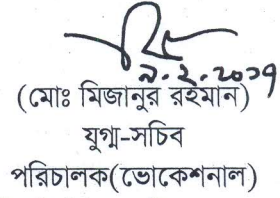 ৯.২.২০১৭
(মোঃ মিজানুর রহমান)
যুগ্ম-সচিব
পরিচালক(ভোকেশনাল)